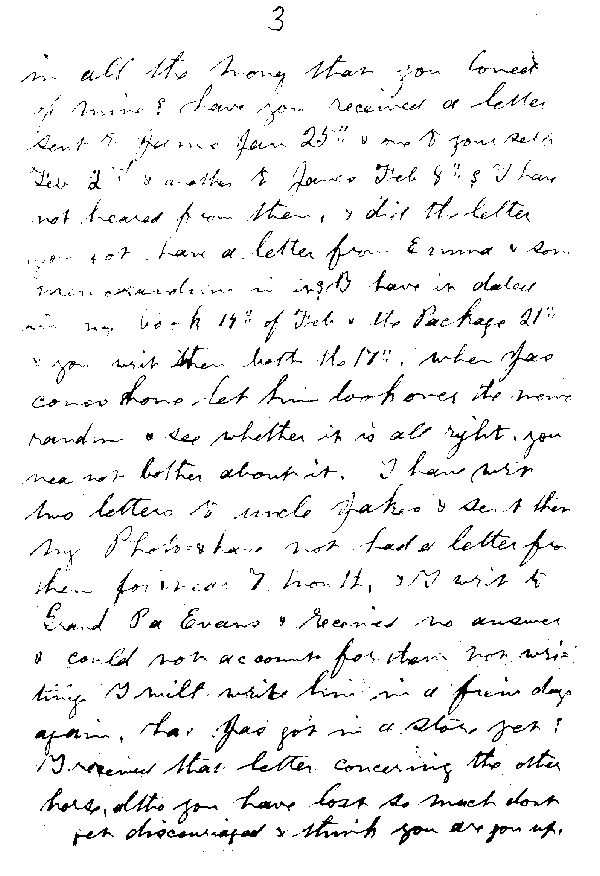 3
in all the money that you loned
of mine? have you received a letter
sent to Jas Jan 25th & one to yourself
Feb 2nd & another to James Feb 8th & I have
not heared from them, & did the letter
you got have a letter from Emma & som
memorandum in it have in dated
in my book 14th of Feb & the Package 21st
& you writ then both the 17th. when Jas
comes home let him look over the memo
randm & see whether it is all right. you
nea not bother about it. I have writ
two letters to uncle Jakes & sent them
my Photo & have not had a letter fro
them for near 7 month, & I writ to
Grand Pa Evans & received no answer
& could not account for them not wri
ting I will write him in a few days
again, has Jas got in a store yet?
I received that letter concerning the other
horse, altho you have lost so much dont
get discouraged & think you are you up.